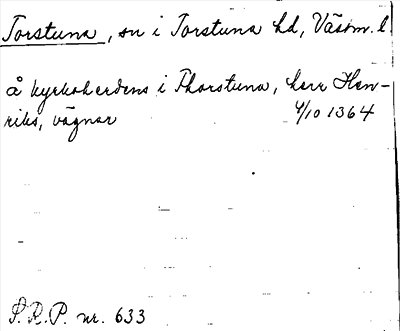 Torstuna, sn i Torstuna hd, Västm. l
å kyrkoherdens i Thorstuna, herr Hen-
riks, vägnar 4/10 1364
S.R.P. nr. 633